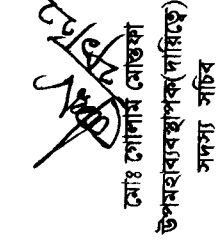 মোঃ গোলাম মোস্তফা
উপমহাব্যবস্থাপক(দায়িত্বে)
সদস্য সচিব